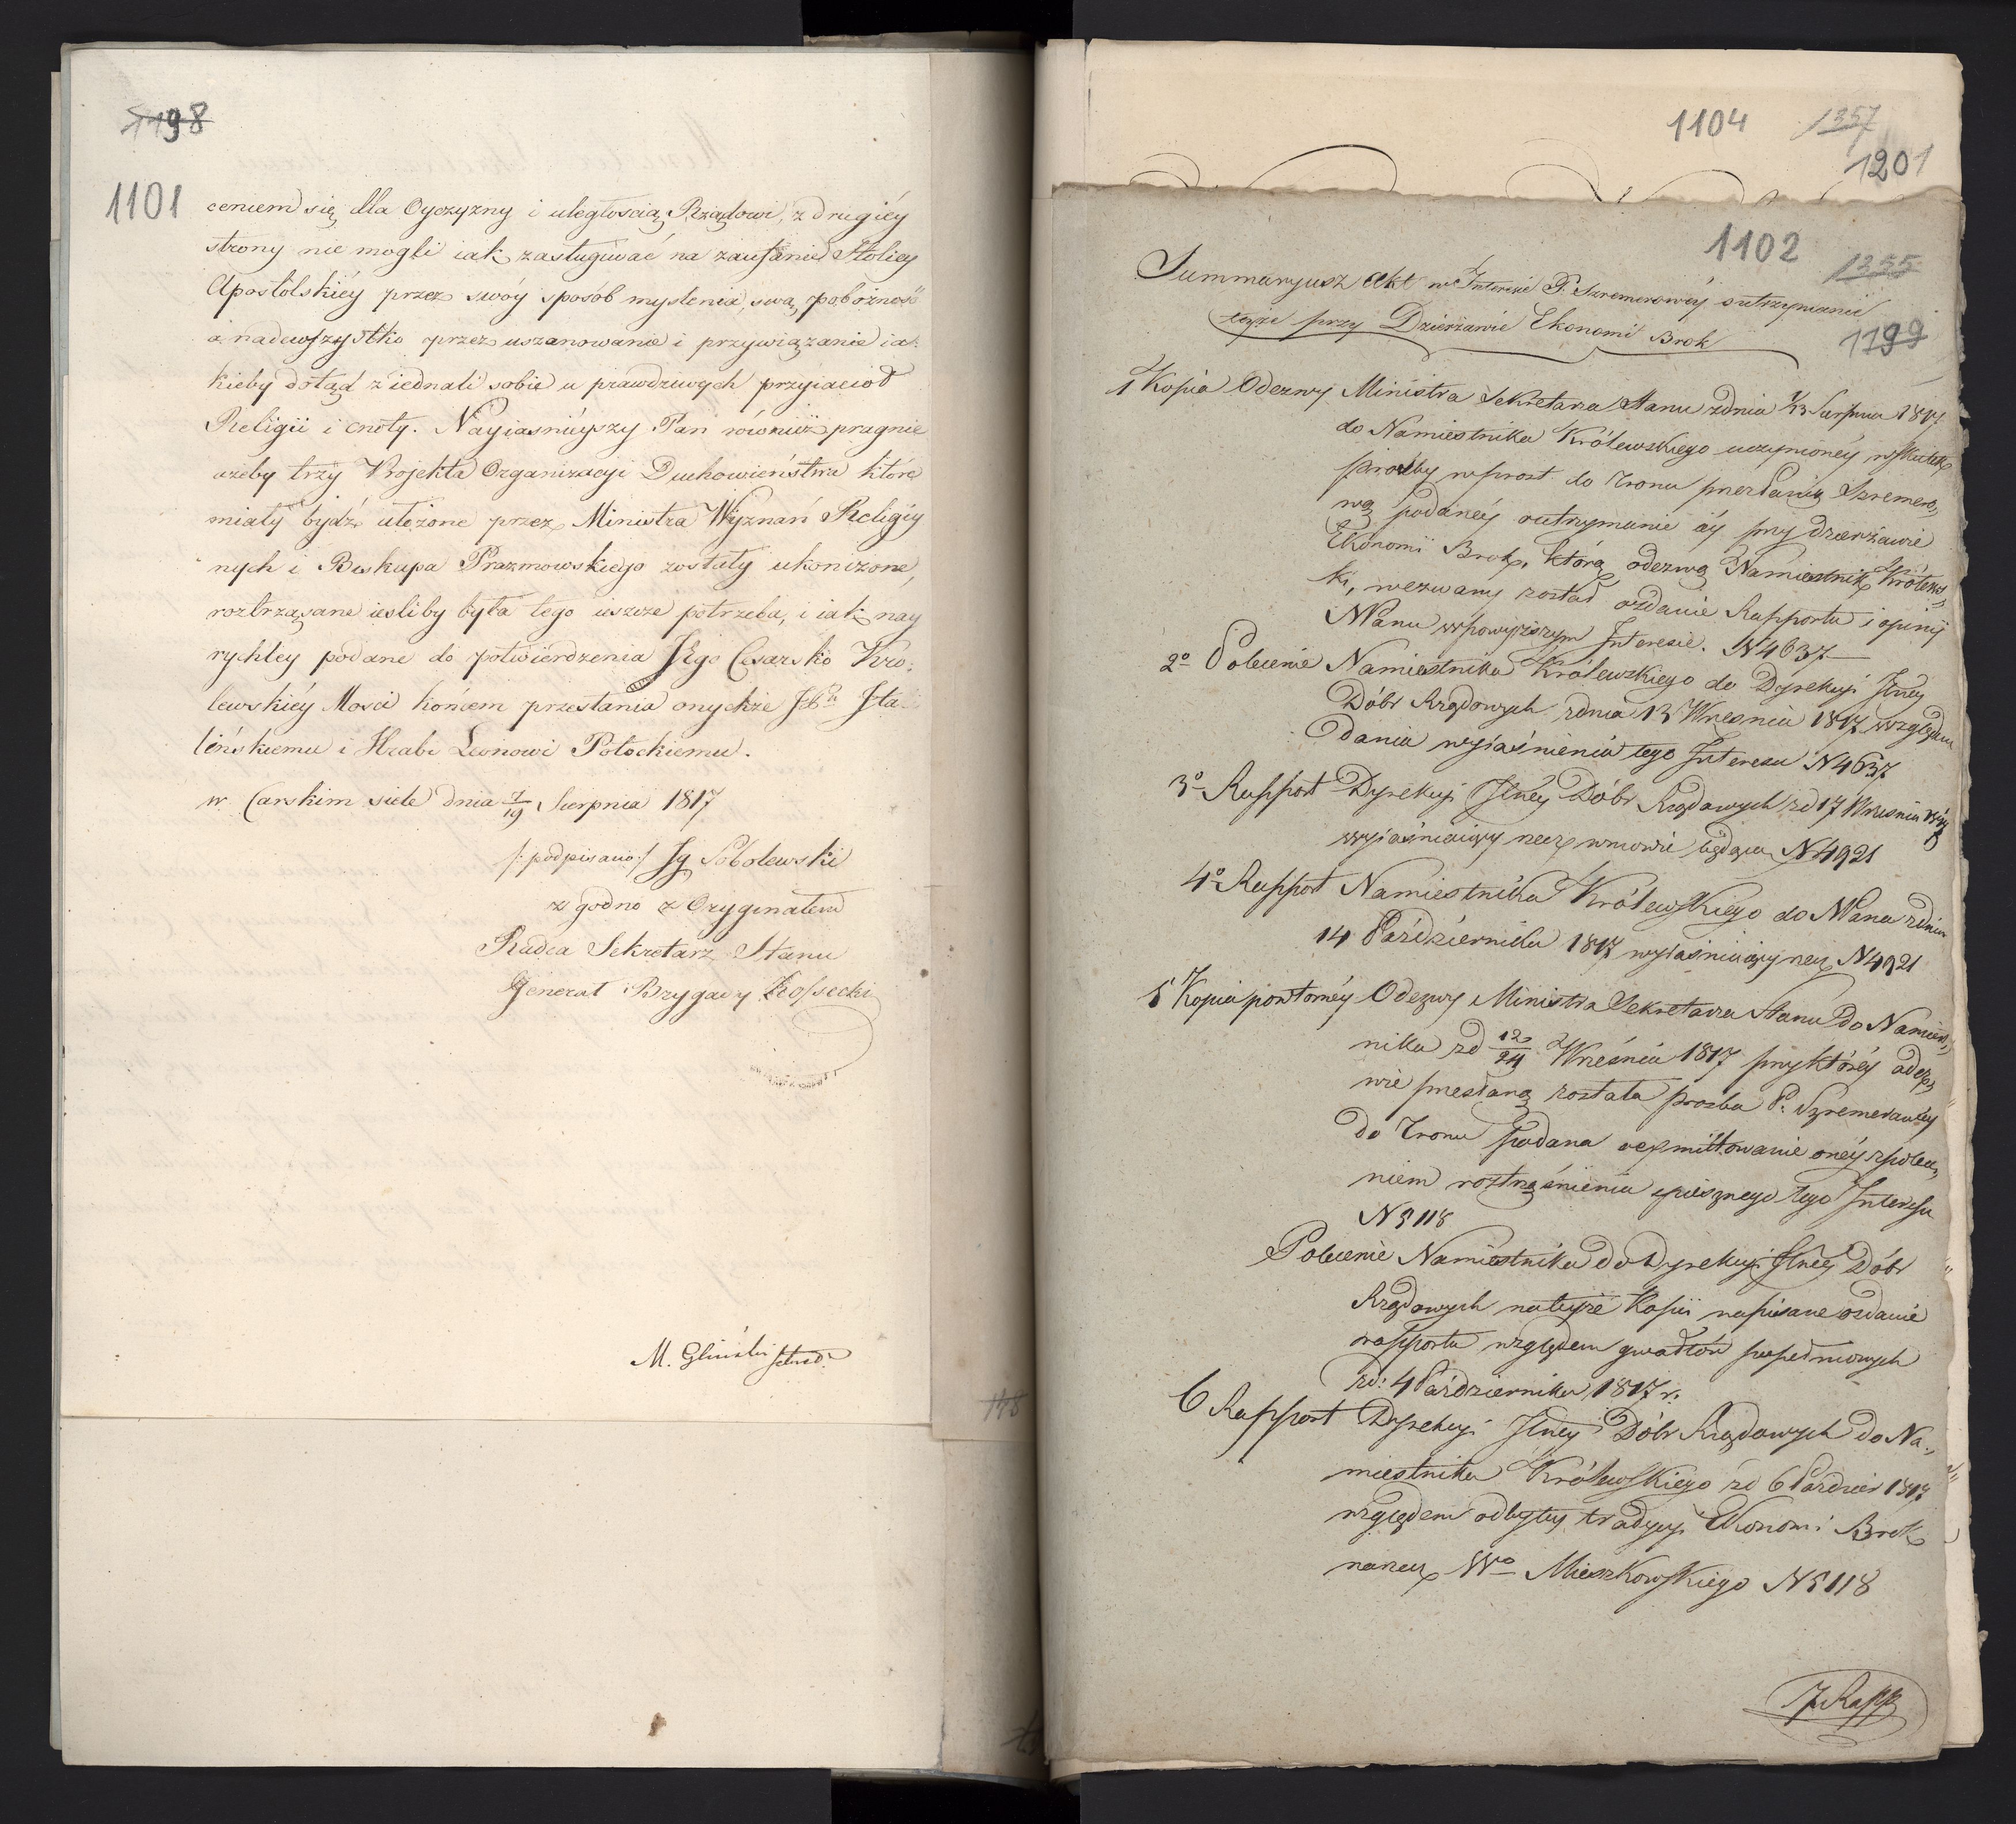 1198
1101
ceniem się dla Oyczyzny i uległością Rządowi, z drugiéy
strony nie mogli iak zasługiwać na zaufanie Stolicy
Apostolskiéy przez swóy sposób myślenia, swą pobożność
a nadewszystko przez uszanowanie i przywiązanie ia-
kieby dotąd ziednali sobie u prawdziwych przyiaciół
Religii i cnoty. Nayiaśnieyszy Pan równiéż pragnie
ażeby trzy Projekta Organizacyi Duchowieństwa które
miały bydź ułożone przez Ministra Wyznań Religiy
nych i Biskupa Prazmowskiego zostały ukończone,
roztrząsane iesliby była tego ieszcze potrzeba, i iak nay
rychley podane do potwierdzenia Jego Cesarsko Kro:
lewskiéy Mosci końcem przesłania onychże Sta
lińskiemu i Hrabi Leonowi Potockiemu.
w Carskim siele dnia 7/19 Sierpnia 1817
/: podpisano :/ Ig Sobolewski
zgodno z Oryginałem
Radca Sekretarz Stanu
Generał Brygady Kossecki
M. Gliński
148
1104 1357
1201
1102 1355
Summaryusz akt w Interesie P. Szremerowéy o utrzymanie
teyże przy Dzierżawie Ekonomii Brok
1199
1 Kopia Odezwy Ministra Sekretarza Stanu zdnia Sierpnia 1817
do Namiestnika Królewskiego uczynionéy wskutek
proźby wprost do Tronu przez Panią Szremero„
wą podanéy outrzymanie iéy przy dzierżawie
Ekonomii Brok, którą odezwą Namiestnik Królews„
ki, wezwany został ozdanie Rapportu i opinii
NPanu wpowyższym Interesie. N 4637
2o Polecenie Namiestnika Królewskiego do Dyrekcyi Jlnéy
Dóbr Rządowych zdnia 13 Wrzesnia 1817 względem
dania wyiaśnienia tego Interesu N 4637
3o Rapport Dyrekcyi Jlnéy Dóbr Rządowych zd 17 Wrzesnia
wyiaśniaiący rzecz wmowie będącą N 4921
4o Rapport Namiestnika Królewskiego do NPana zdnia
14 Października 1817 wyiaśniaiący rzecz N 4921
5 Kopia powtórnéy Odezwy Ministra Sekretarza Stanu do Namiest„
nika zd 12/24 Września 1817 przy któréy odez„
wie przesłaną została prozba P. Szremerowéy
do Tronu podana onéy zpolece„
niem roztrząśnienia spiesznego tego Interesu
N 5118
Polecenie Namiestnika do Dyrekcyi Jlnéy Dóbr
Rządowych na teyże Kopii napisane ozdanie
rapportu względem gwałtów popełnionych
zd: 4 Października 1817 r.
6 Rapport Dyrekcyi Jlnéy Dóbr Rządowych do Na„
miestnika Królewskiego zd 6 Paździer 1817
względem odbytey tradycyi Ekonomi Brok
narzecz Wo Mieszkowskiego N 5118
J. Rapp